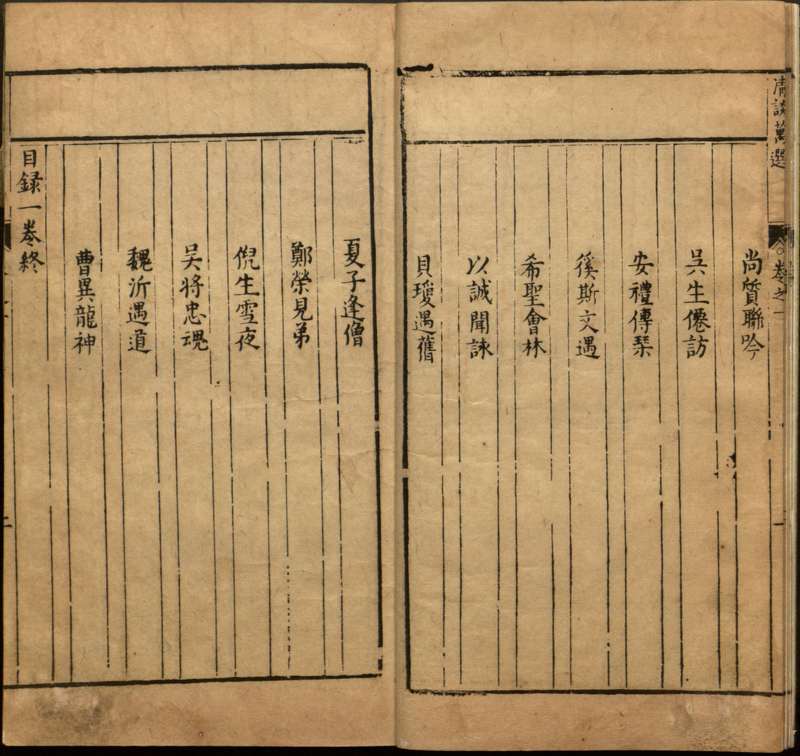 清談萬選
卷之一
尚質聯吟
吳生僊訪
安禮傳琴
徯斯文遇
希聖會林
以誠聞詠
貝瓊遇舊
夏子逢僧
鄭榮見弟
倪生雪夜
吳將忠魂
魏沂遇道
曹異龍神
目録一卷終